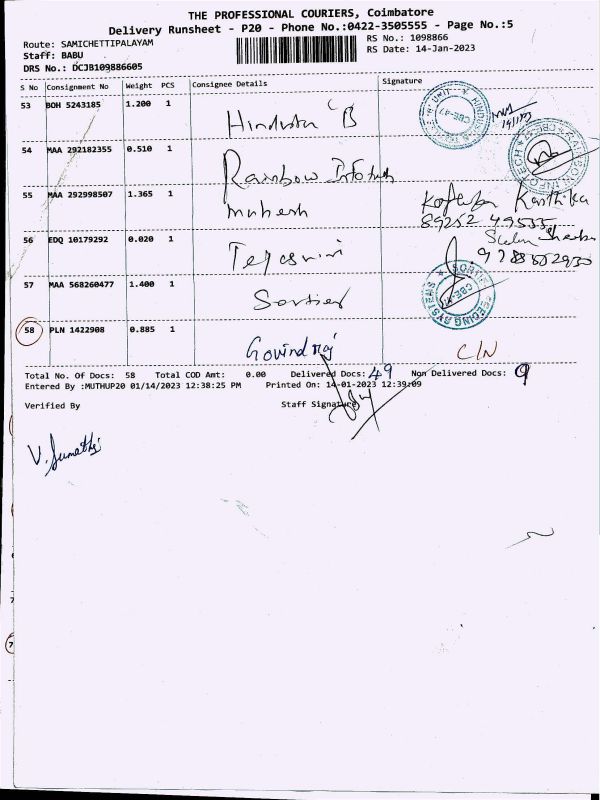 THE PROFESSIONAL COURIERS, Coimbatore
Delivery Runsheet - P20 - Phone No.:0422-3505555 - Page No.:5
Route: SAMICHETTIPALAYAM
RS No.: 1098866
Staff: BABU
RS Date: 14-Jan-2023
DRS No.: DCJB109886605
S No Consignment No Weight PCS Consignee Details Signature
53 BOH 5243185 1.200 1
54 MAA 292182355 0.510 1 Rainbow Infotech
55 MAA 292998507 1.365 1 mukesh Karthika
89252 49535
56 EDQ 10179292 0.020 1 Tejasvini
57 MAA 568260477 1.400 1
58 PLN 1422908 0.885 1 Govindraj C/N
Total No. Of Docs: 58 Total COD Amt: 0.00 Delivered Docs: 49 Non Delivered Docs: 9
Entered By :MUTHUP20 01/14/2023 12:38:25 PM Printed On: 14-01-2023 12:39:09
Verified By Staff Signature
V. Sumathi